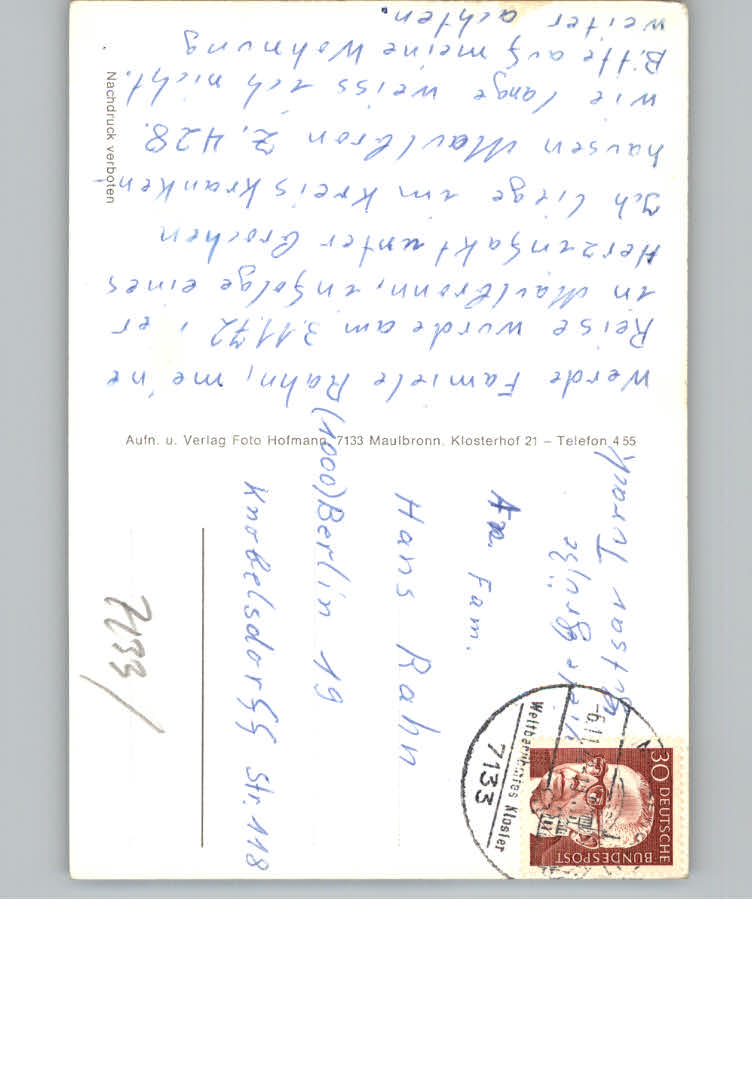 Werde Famiele Rahn, meine
Reise wurde am 3.11.72 ier
in Maulbronn, infolge eines
Herzinfakt unterbrochen
Ich liege im Kreiskranken-
hausen Maulbron Z. 428.
wie lange weiss ich nicht.
Bitte auf meine Wohnung
weiter achten.
Viele grüße
Nachdruck verboten
Aufn. u. Verlag Foto Hofmann, 7133 Maulbronn. Klosterhof 21 – Telefon 4 55
An Fam.
Hans Rahn
(1000) Berlin 19
Knobelsdorff Str. 118
7133
-6.11.
Weltbekanntes Kloster
7133
30 DEUTSCHE
BUNDESPOST